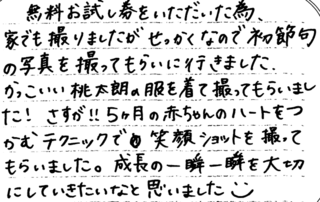 無料お試し券をいただいた為、
家でも撮りましたがせっかくなので初節句
の写真を撮ってもらいに行きました。
かっこいい桃太郎の服を着て撮ってもらいまし
た！さすが!!5ヶ月の赤ちゃんのハートをつ
かむテクニックで笑顔ショットを撮って
もらいました。成長の一瞬一瞬を大切
にしていきたいなと思いました